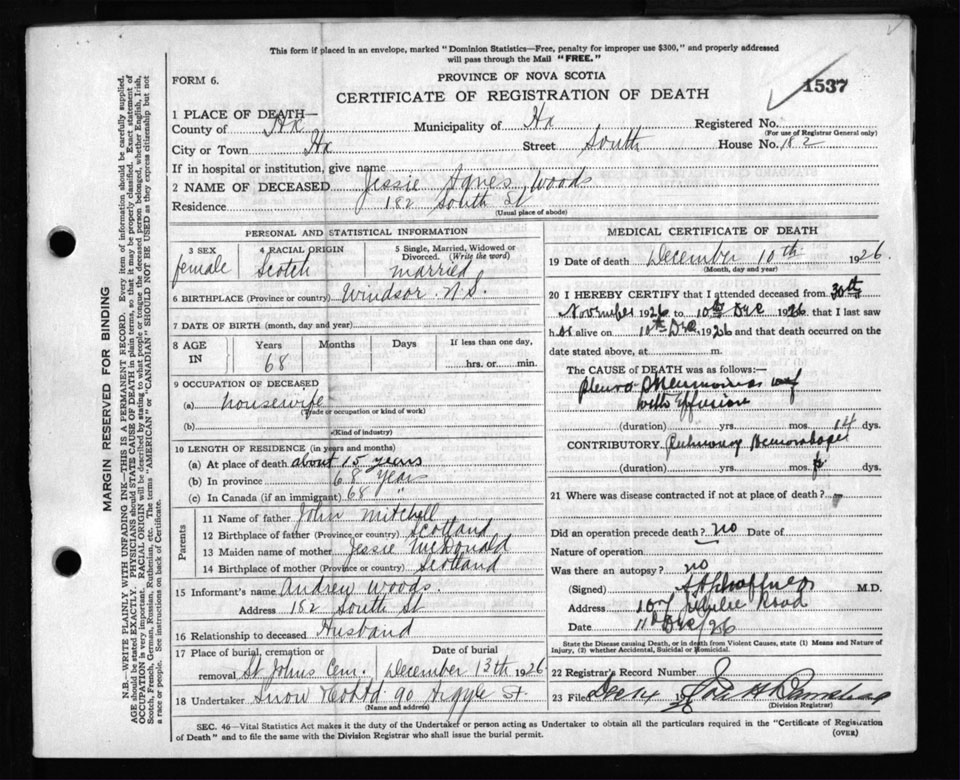 This form if placed in an envelope, marked "Dominion Statistics—Free, penalty for improper use $300," and properly addressed
will pass through the Mail "FREE."
FORM 6.
PROVINCE OF NOVA SCOTIA
1537
CERTIFICATE OF REGISTRATION OF DEATH
1 PLACE OF DEATH—
County of Hx Municipality of Hx Registered No.
(For use of Registrar General only)
City or Town Hx Street South House No. 182
If in hospital or institution, give name
2 NAME OF DECEASED Jessie Agnes Woods
Residence 182 South St
(Usual place of abode)
PERSONAL AND STATISTICAL INFORMATION
3 SEX 4 RACIAL ORIGIN 5 Single, Married, Widowed or
Divorced. (Write the word)
female Scotch married
6 BIRTHPLACE (Province or country) Windsor N.S.
7 DATE OF BIRTH (month, day and year)
8 AGE IN Years Months Days If less than one day,
68 hrs. or min.
9 OCCUPATION OF DECEASED
(a) housewife
(Trade or occupation or kind of work)
(b)
(Kind of industry)
10 LENGTH OF RESIDENCE (in years and months)
(a) At place of death about 15 years
(b) In province 68 years
(c) In Canada (if an immigrant) 68 "
Parents
11 Name of father John Mitchell
12 Birthplace of father (Province or country) Scotland
13 Maiden name of mother Jessie McDonald
14 Birthplace of mother (Province or country) Scotland
15 Informant's name Andrew Woods.
Address 182 South St
16 Relationship to deceased Husband
17 Place of burial, cremation or Date of burial
removal St Johns Cem. December 13th 1926
18 Undertaker Snow 90 Argyle St.
(Name and address)
MEDICAL CERTIFICATE OF DEATH
19 Date of death December 10th 1926.
(Month, day and year)
20 I HEREBY CERTIFY that I attended deceased from 30th
November 1926 to 10th Dec 1926 that I last saw
h alive on 10th Dec 1926 and that death occurred on the
date stated above, at m.
The CAUSE OF DEATH was as follows:—
Pleuro
with Effusion
(duration) yrs. mos. 14 dys.
CONTRIBUTORY. Pulmonary
(duration) yrs. mos. dys.
21 Where was disease contracted if not at place of death?
Did an operation precede death? no Date of
Nature of operation
Was there an autopsy? no
(Signed) M.D.
Address 107 Road
Date 11th Dec/26
State the Disease causing Death, or in death from Violent Causes, state (1) Means and Nature of
Injury, (2) whether Accidental, Suicidal or Homicidal.
22 Registrar's Record Number
23 Filed Dec 14 19
(Division Registrar)
SEC. 46—Vital Statistics Act makes it the duty of the Undertaker or person acting as Undertaker to obtain all the particulars required in the "Certificate of Registration
of Death" and to file the same with the Division Registrar who shall issue the burial permit. (OVER)
MARGIN RESERVED FOR BINDING
N.B.—WRITE PLAINLY WITH UNFADING INK—THIS IS A PERMANENT RECORD. Every item of information should be carefully supplied.
AGE should be stated EXACTLY. PHYSICIANS should STATE CAUSE OF DEATH in plain terms, so that it may be properly classified. Exact statement of
OCCUPATION is very important. RACIAL ORIGIN will be described by stating to what people or tongue the deceased person belonged, whether English, Irish,
Scotch, French, German, Russian, Ruthenian, etc. The terms "AMERICAN" or "CANADIAN" SHOULD NOT BE USED as they express citizenship but not
a race or people. See instructions on back of Certificate.